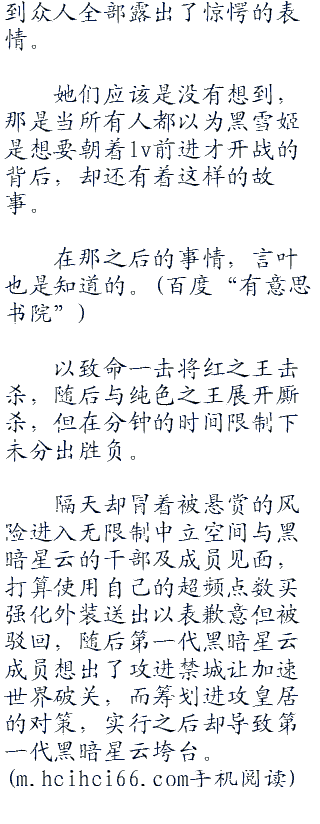 到众人全部露出了惊愕的表
情。
她们应该是没有想到，
那是当所有人都以为黑雪姬
是想要朝着lv前进才开战的
背后，却还有着这样的故
事。
在那之后的事情，言叶
也是知道的。(百度“有意思
书院”)
以致命一击将红之王击
杀，随后与纯色之王展开厮
杀，但在分钟的时间限制下
未分出胜负。
隔天却冒着被悬赏的风
险进入无限制中立空间与黑
暗星云的干部及成员见面，
打算使用自己的超频点数买
强化外装送出以表歉意但被
驳回，随后第一代黑暗星云
成员想出了攻进禁城让加速
世界破关，而筹划进攻皇居
的对策，实行之后却导致第
一代黑暗星云垮台。
(m.hcihci66.com手机阅读)